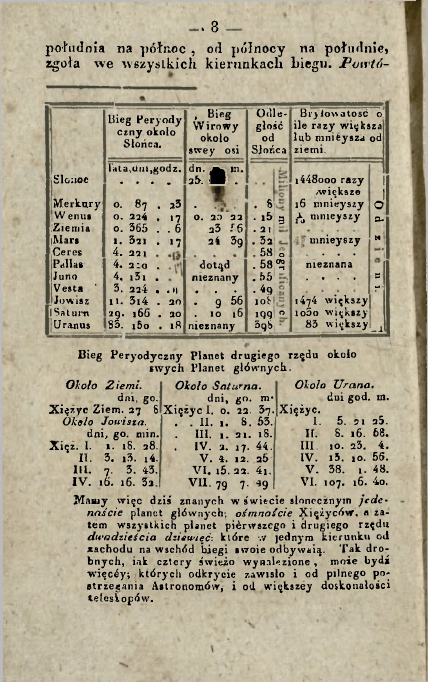 — 8 —
południa na północ, od północy na południe,
zgoła we wszystkich kierunkach biegu. Powtó-
Bieg Peryody czny około Słońca. | Bieg Wirowy około swey osi | Odle- głość od Słońca | Bryłowatość o ile razy większa lub mnieysza od ziemi.
lata, dni, godz. | dn. m.
Słonce . . . . 25. . . . 1448000 razy większe
Merkury 0. 87 . 23 . . . . 8 16 mnieyszy
Wenus 0. 224 . 17 0. 23 22 . 15 mnieyszy
Ziemia 0. 365 . . 6 23 56 . 21 . . .
Mars 1. 321 . 17 24 39 . 32 mnieyszy
Ceres 4. 221 . . . . . 58 . . .
Pallas 4. 220 . . . dotąd . 58 nieznana
Juno 4. 131 . . nieznany . 55 . . .
Vesta 3. 224 . . . . . 49 . . .
Jowisz 11. 314 . 20 . 9 56 108 1474 większy
Saturn 29. 166 . 20 . 10 16 199 1030 większy
Uranus 83. 150 . 18 nieznany 398 83 większy
Milliony mil Jeograficznych.
Od ziemi
Bieg Peryodyczny Planet drugiego rzędu około
swych Planet głównych.
Około Ziemi. | Około Saturna. | Około Urana.
dni, go. | dni, go. m. | dni god. m.
Xiężyc Ziem. 27 8 | Xiężyc I. 0. 22. 37. | Xiężyc.
Około Jowisza. | . . II. 1. 8. 53. | I. 5. 21 25.
dni, go. min. | . III. 1. 21. 18. | II. 8. 16. 58.
Xięż. I. 1. 18. 28. | . IV. 2. 17. 44. | III. 10. 23. 4.
II. 3. 13. 14. | V. 4. 12. 25 | IV. 13. 10. 56.
III. 7. 3. 43. | VI. 15. 22. 41. | V. 38. 1. 48.
IV. 16. 16. 32. | VII. 79 7. 49 | VI. 107. 16. 40.
Mamy więc dziś znanych w świecie słonecznym jede-
naście planet głównych; ośmnoście Xiężyców, a za-
tem wszystkich planet pierwszego i drugiego rzędu
dwadzieścia dziewięć: które w jednym kierunku od
zachodu na wschód biegi swoie odbywaią. Tak dro-
bnych, iak cztery świeżo wynalezione, może bydź
więcéy; których odkrycie zawisło i od pilnego po-
strzegania Astronomów, i od większey doskonałości
teleskopów.